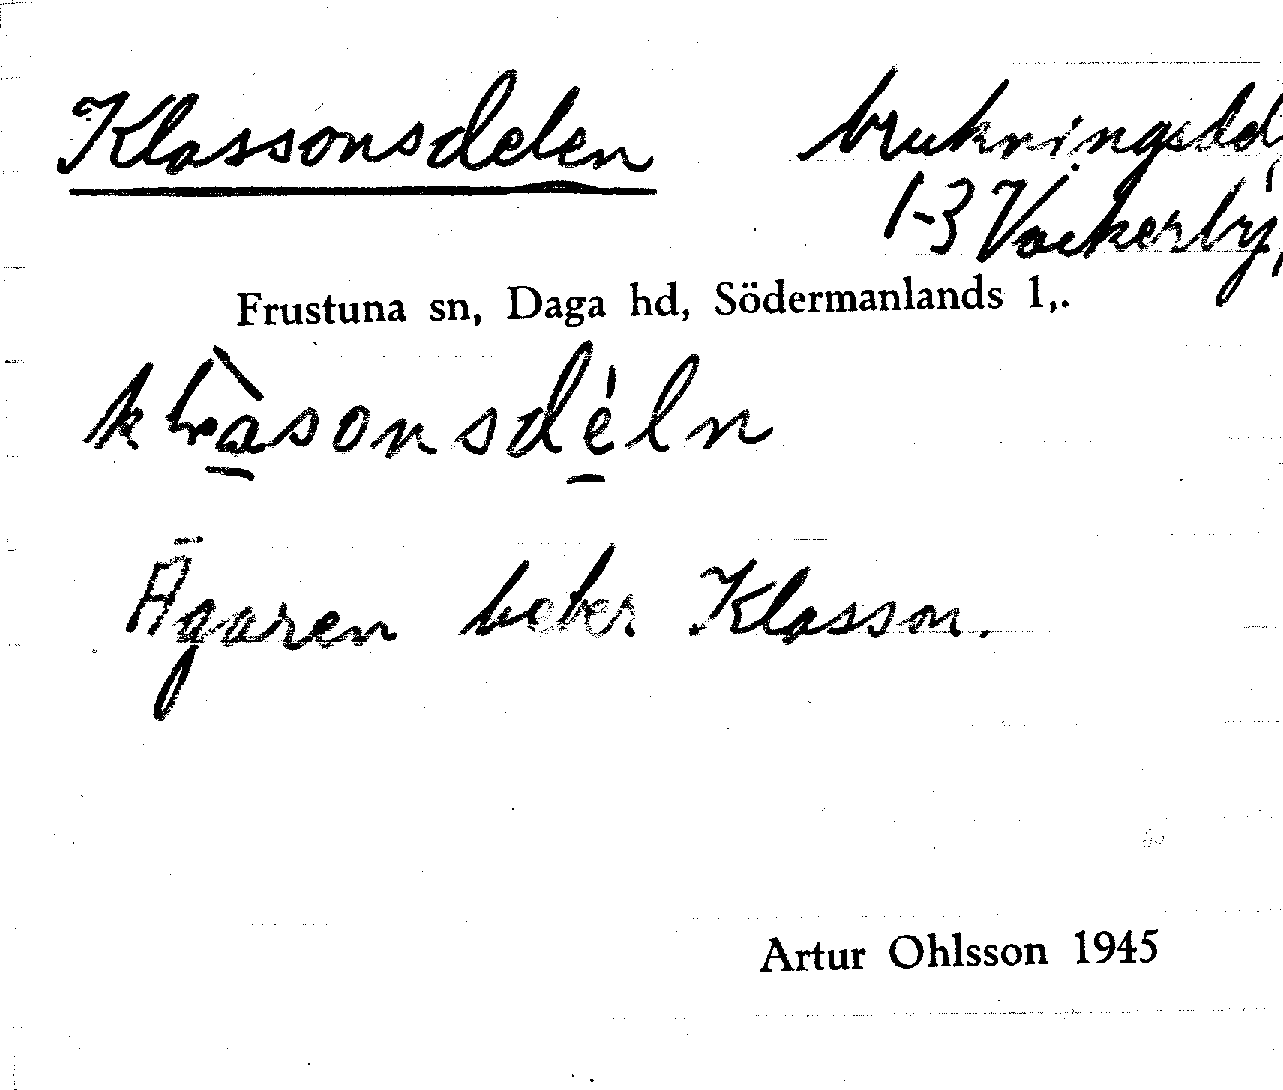 Klassonsdelen brukningsdel,
1-3 Vackerby,
Frustuna sn, Daga hd, Södermanlands l,.
klàsonsdéln
Ägaren heter Klasson.
Artur Ohlsson 1945